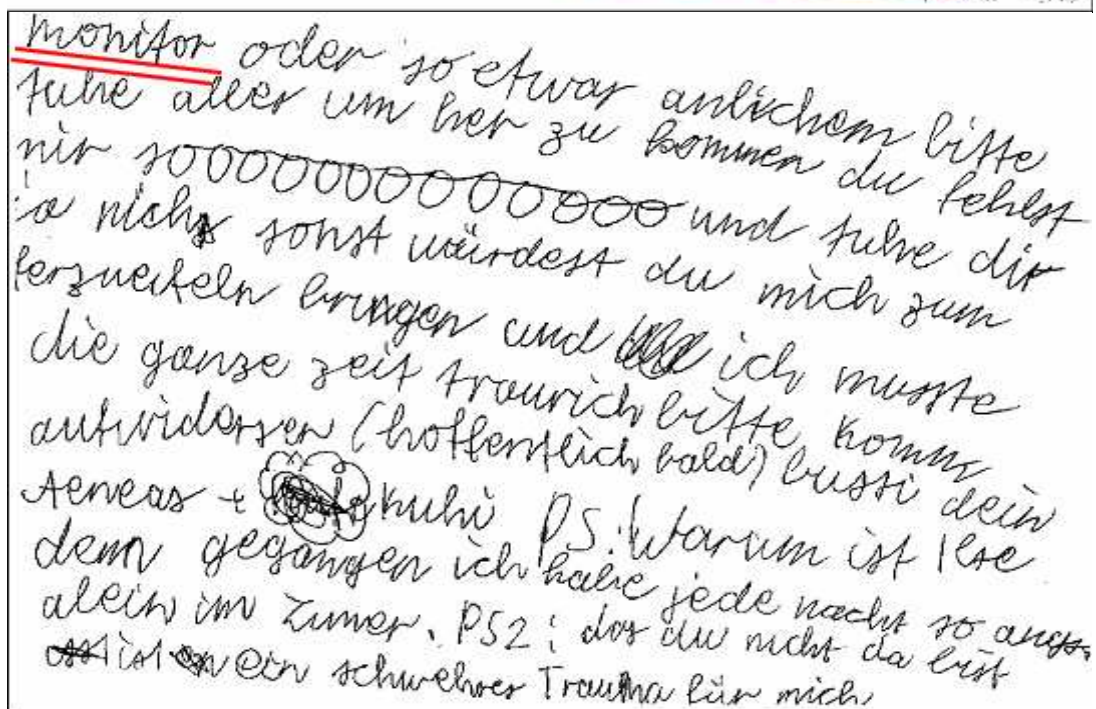 monitor oder so etwas anlichem bitte
tuhe alles um her zu kommen du fehlst
mir sooooooooooooo und tuhe dir
ja nichs sonst würdest du mich zum
ferzweifeln bringen und ich musste
die ganze zeit traurich bitte komm
auf widersen (hoffentlich bald) bussi dein
Aeneas + Kuhi PS: Warum ist Ilse
denn gegangen ich habe jede nacht so angs
alein im Zimer. PS2: das du nicht da bist
ist ein schwehres Trauma für mich